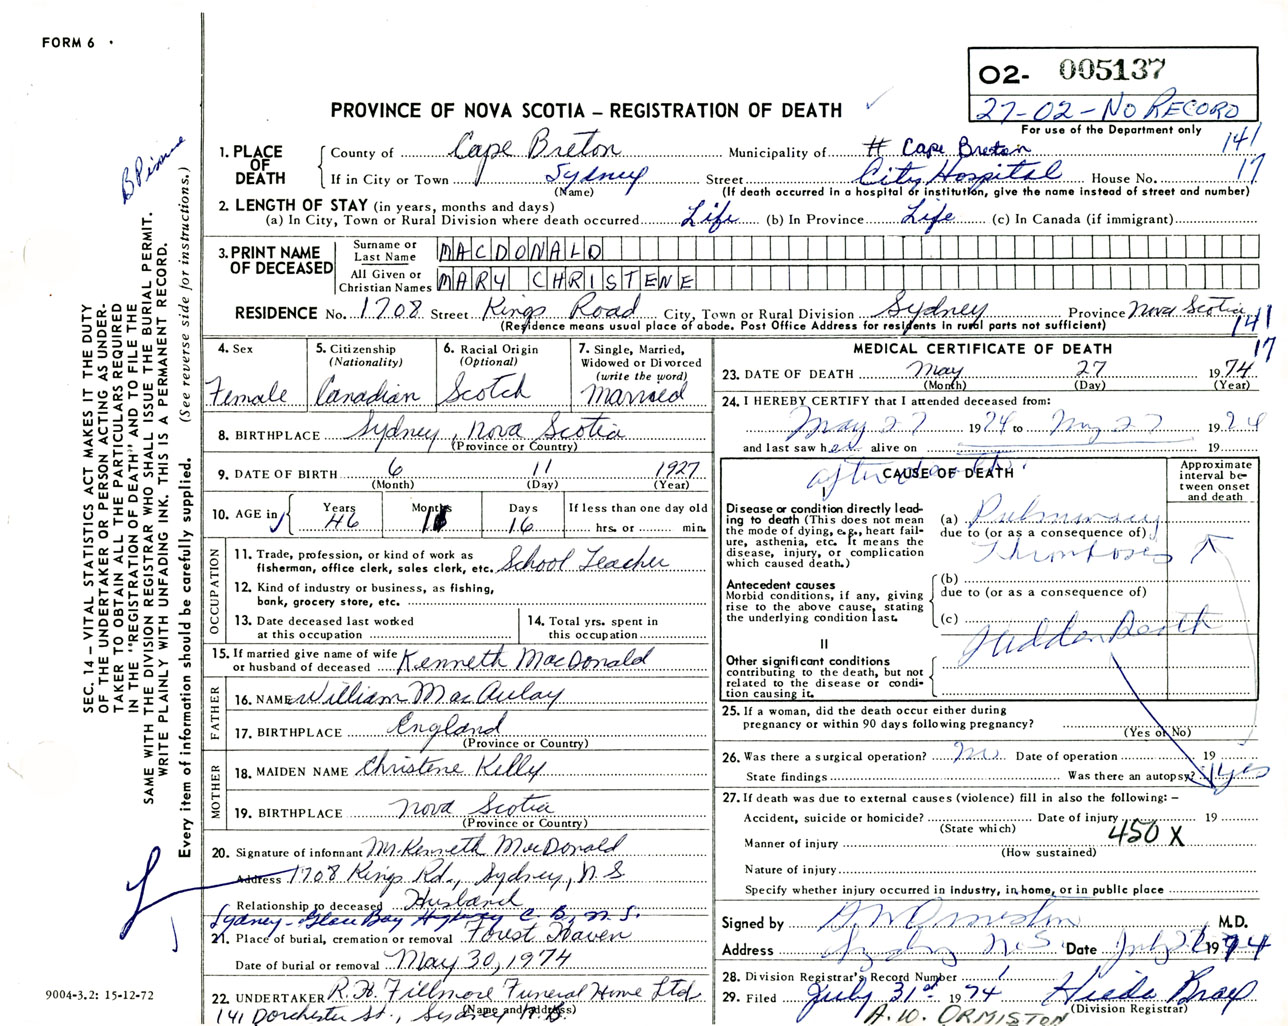 FORM 6
O2- 005137
27-02-NO RECORD
For use of the Department only
PROVINCE OF NOVA SCOTIA – REGISTRATION OF DEATH
141
17
1. PLACE OF DEATH
County of Cape Breton Municipality of # Cape Breton
If in City or Town Sydney Street City Hospital House No.
(Name) (If death occurred in a hospital or institution, give the name instead of street and number)
2. LENGTH OF STAY (in years, months and days)
(a) In City, Town or Rural Division where death occurred Life (b) In Province Life (c) In Canada (if immigrant)
3. PRINT NAME OF DECEASED
Surname or Last Name MACDONALD
All Given or Christian Names MARY CHRISTENE
RESIDENCE No. 1708 Street Kings Road City, Town or Rural Division Sydney Province Nova Scotia
(Residence means usual place of abode. Post Office Address for residents in rural parts not sufficient)
141
17
4. Sex
Female
5. Citizenship
(Nationality)
Canadian
6. Racial Origin
(Optional)
Scotch
7. Single, Married,
Widowed or Divorced
(write the word)
Married
8. BIRTHPLACE Sydney, Nova Scotia
(Province or Country)
9. DATE OF BIRTH 6 11 1927
(Month) (Day) (Year)
10. AGE in
Years Months Days If less than one day old
46 16 hrs. or min.
OCCUPATION
11. Trade, profession, or kind of work as
fisherman, office clerk, sales clerk, etc. School Teacher
12. Kind of industry or business, as fishing,
bank, grocery store, etc.
13. Date deceased last worked
at this occupation
14. Total yrs. spent in
this occupation
15. If married give name of wife
or husband of deceased Kenneth MacDonald
FATHER
16. NAME William MacAulay
17. BIRTHPLACE England
(Province or Country)
MOTHER
18. MAIDEN NAME Christene Kelly
19. BIRTHPLACE Nova Scotia
(Province or Country)
20. Signature of informant Mr. Kenneth MacDonald
Address 1708 Kings Rd., Sydney, N.S
Relationship to deceased Husband
Sydney-Glace Bay Highway C.B., N.S.
21. Place of burial, cremation or removal Forest Haven
Date of burial or removal May 30, 1974
22. UNDERTAKER R.H. Fillmore Funeral Home Ltd
(Name and address)
141 Dorchester St., Sydney N.S.
MEDICAL CERTIFICATE OF DEATH
23. DATE OF DEATH May 27 1974
(Month) (Day) (Year)
24. I HEREBY CERTIFY that I attended deceased from:
May 27 1974 to May 27 1974
and last saw her alive on 19
after death.
CAUSE OF DEATH
Approximate
interval be-
tween onset
and death
I
Disease or condition directly lead-
ing to death (This does not mean
the mode of dying, e.g., heart fail-
ure, asthenia, etc. It means the
disease, injury, or complication
which caused death.)
(a) Pulmonary
due to (or as a consequence of)
Thromboses
Antecedent causes
Morbid conditions, if any, giving
rise to the above cause, stating
the underlying condition last.
(b)
due to (or as a consequence of)
(c)
Sudden Death
II
Other significant conditions
contributing to the death, but not
related to the disease or condi-
tion causing it.
25. If a woman, did the death occur either during
pregnancy or within 90 days following pregnancy?
(Yes or No)
26. Was there a surgical operation? No Date of operation 19
State findings Was there an autopsy? yes
27. If death was due to external causes (violence) fill in also the following: –
Accident, suicide or homicide? Date of injury 19
(State which)
450 X
Manner of injury
(How sustained)
Nature of injury
Specify whether injury occurred in industry, in home, or in public place
Signed by A W Ormiston M.D.
Address Sydney N.S. Date July 1974
28. Division Registrar's Record Number 1
29. Filed July 31st 1974
(Division Registrar)
A. W. ORMISTON
SEC. 14 – VITAL STATISTICS ACT MAKES IT THE DUTY
OF THE UNDERTAKER OR PERSON ACTING AS UNDER-
TAKER TO OBTAIN ALL THE PARTICULARS REQUIRED
IN THE "REGISTRATION OF DEATH" AND TO FILE THE
SAME WITH THE DIVISION REGISTRAR WHO SHALL ISSUE THE BURIAL PERMIT.
WRITE PLAINLY WITH UNFADING INK. THIS IS A PERMANENT RECORD.
Every item of information should be carefully supplied. (See reverse side for instructions.)
9004-3.2: 15-12-72